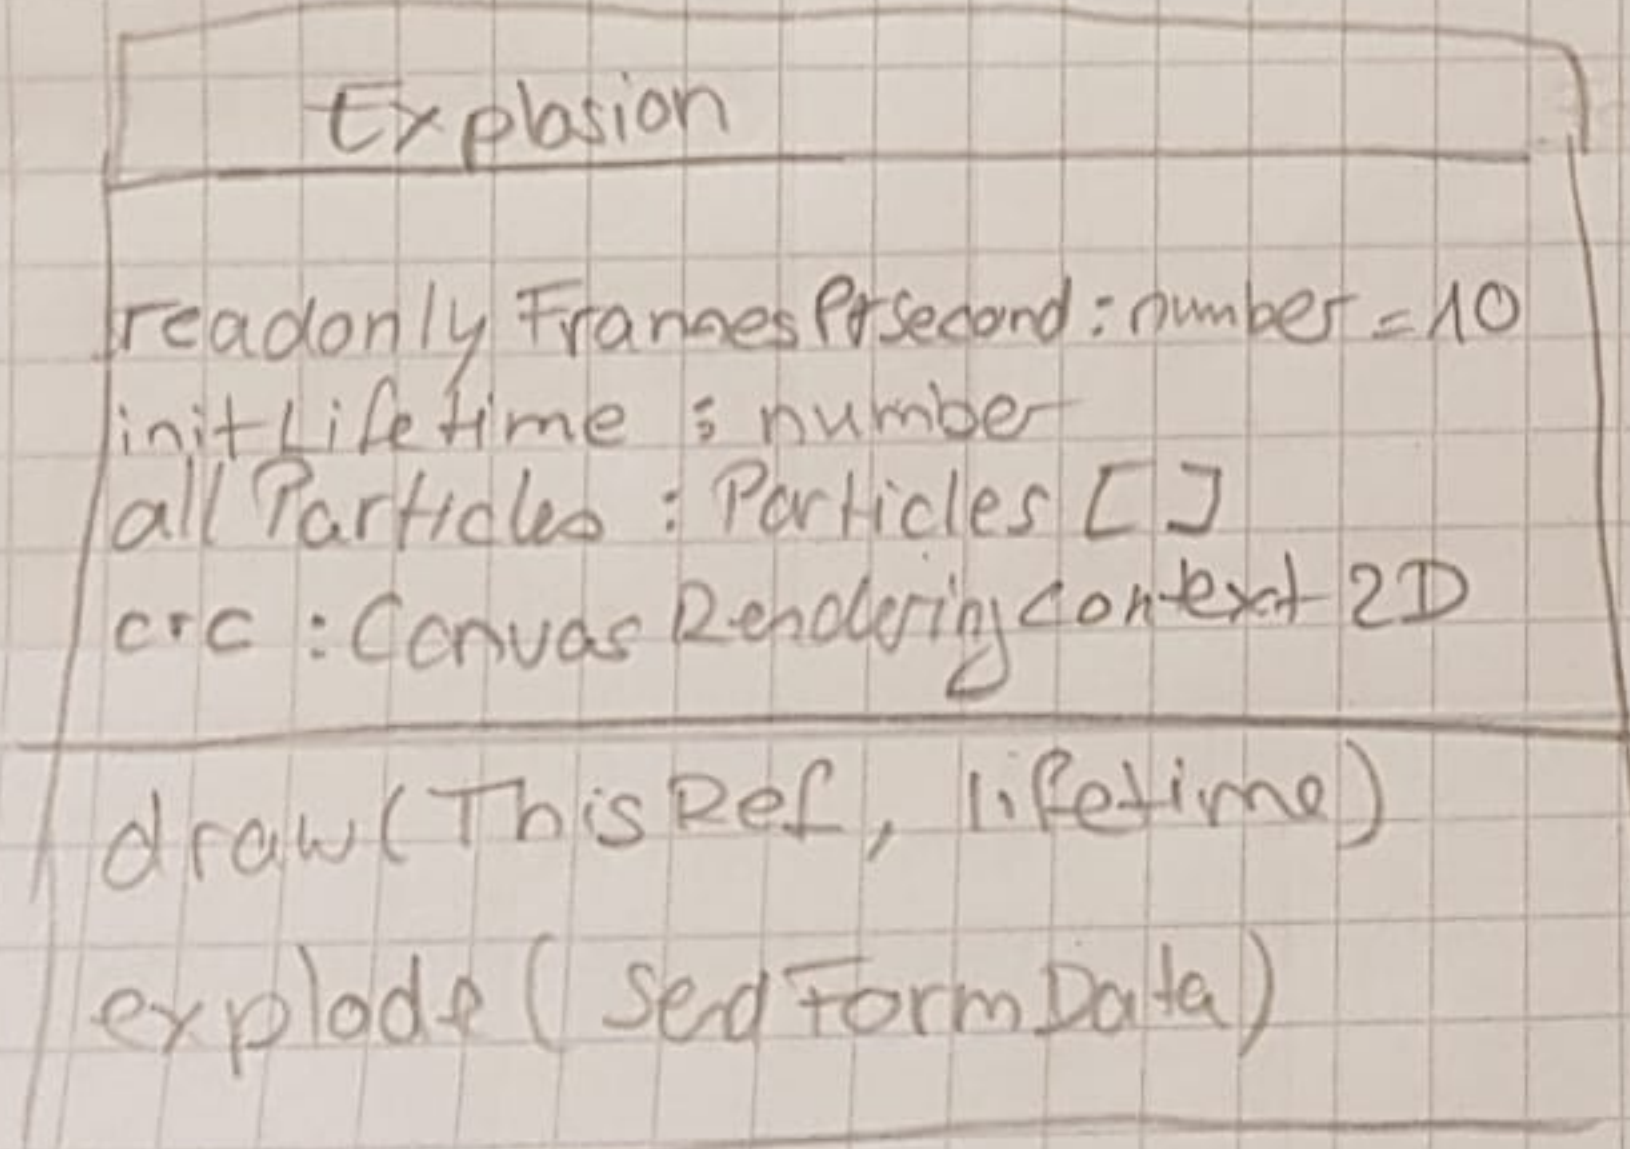 Explosion
readonly Frames PrSecond : number = 10
initLifetime : number
allParticles : Particles []
crc : CanvasRenderingContext2D
draw(ThisRef, lifetime)
explode( SedFormData)